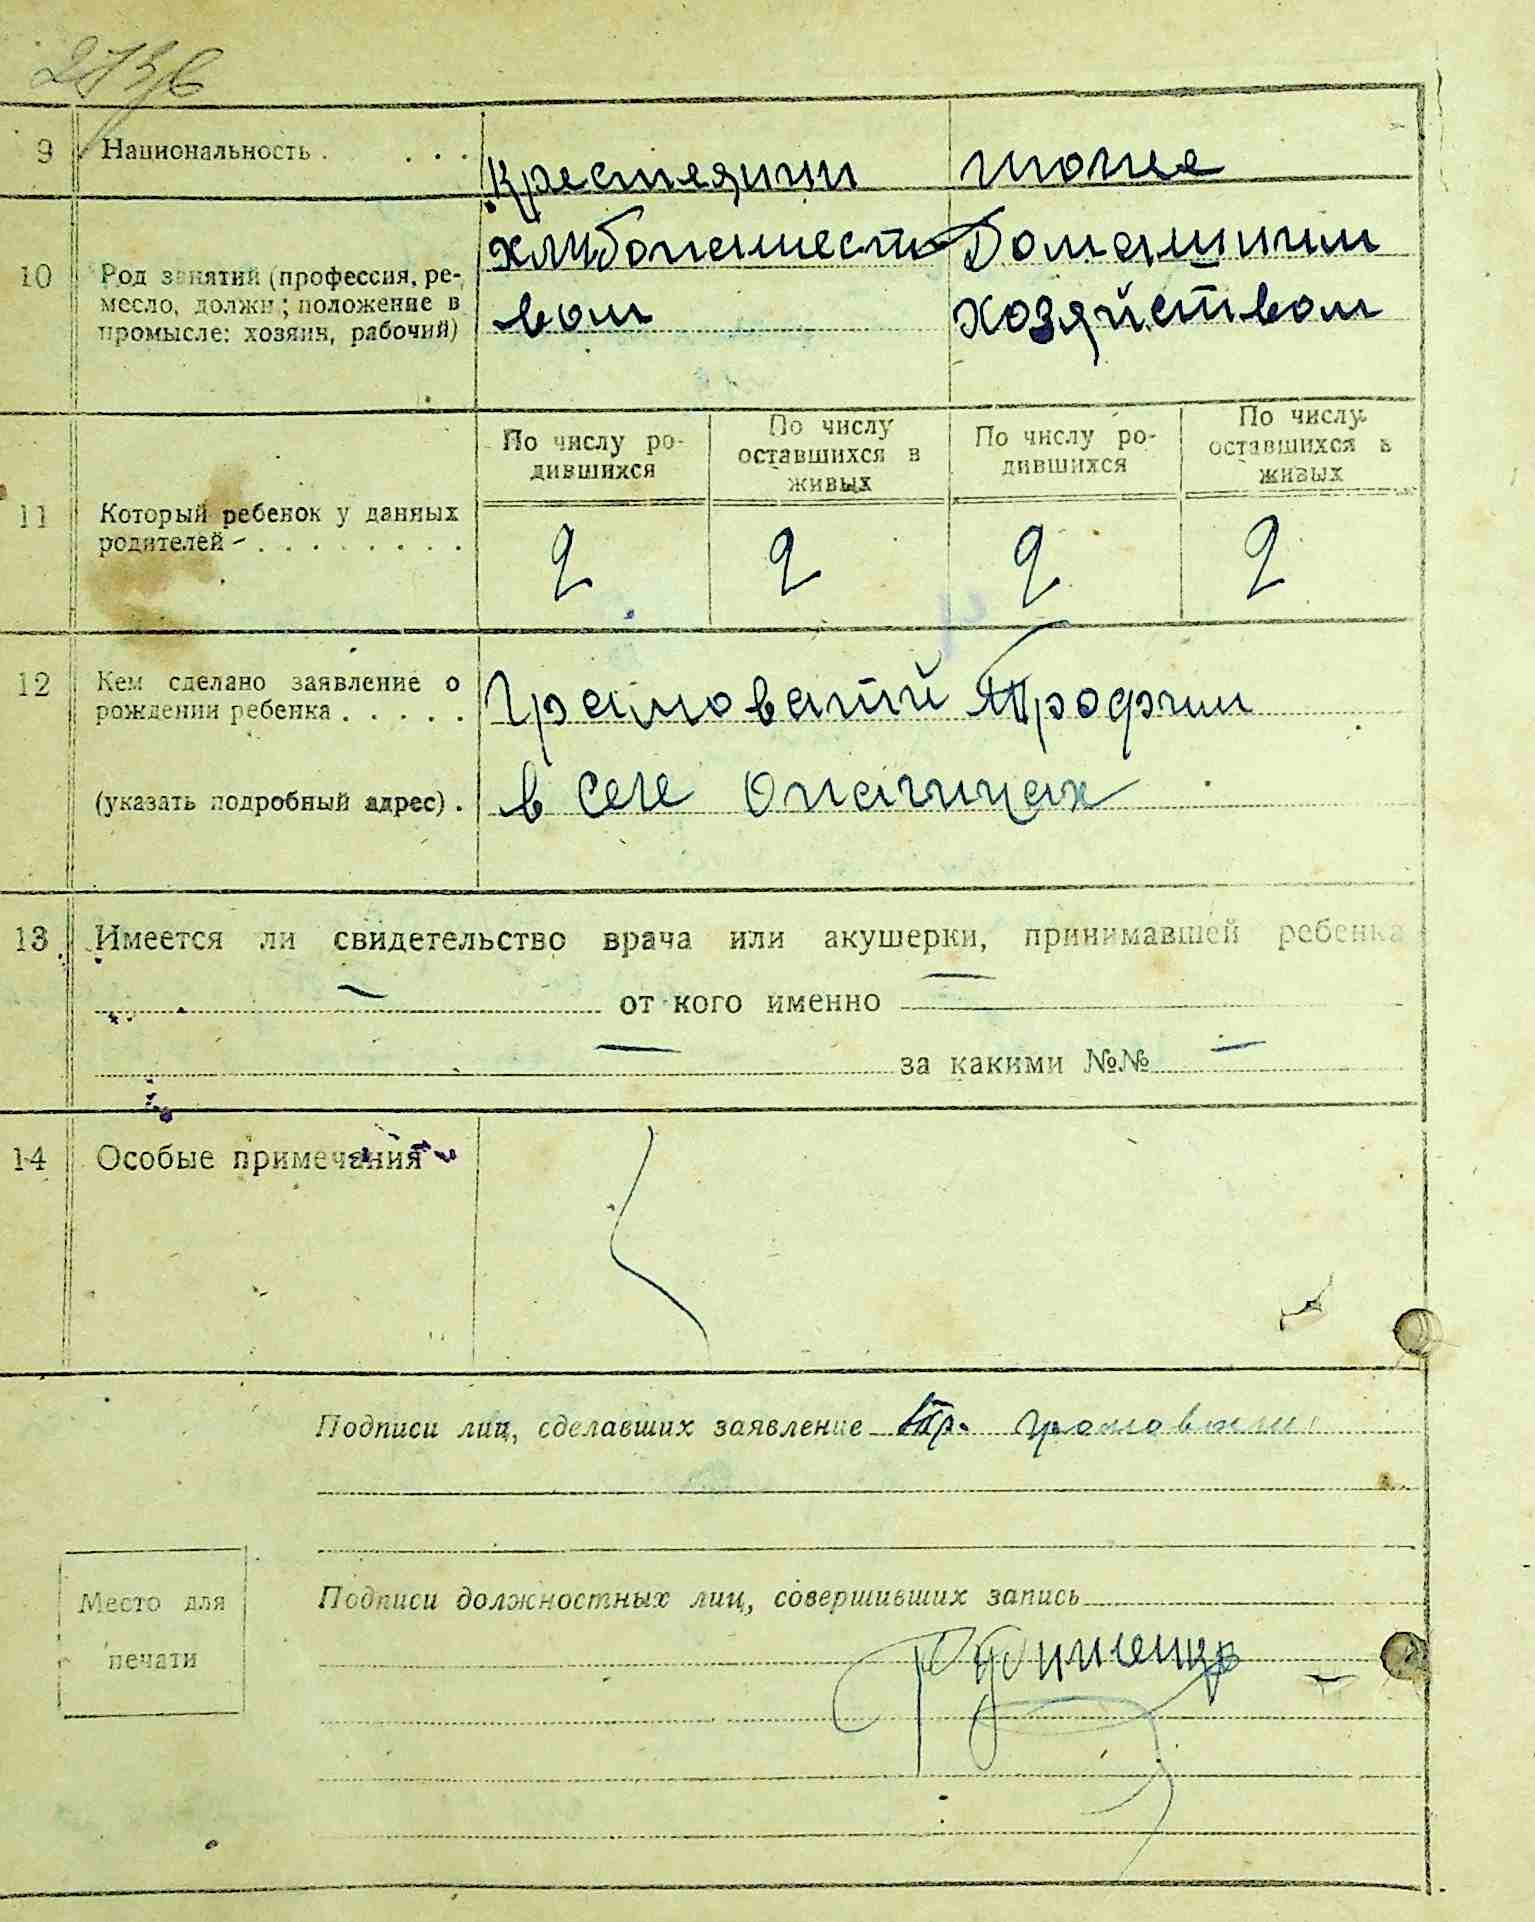 2736
9 Национальность . . . . Крестеянин тоже
10 Род занятий (профессия, ре- хлибопашест Домашним
месло, должн; положение в вом хозяйством
промысле: хозяин, рабочий)
По числу ро- По числу По числу ро- По числу
дившихся оставшихся в дившихся оставшихся в
живых живых
11 Который ребенок у данных
родителей - . . . . . . . . 2 2 2 2
12 Кем сделано заявление о
рождении ребенка . . . . . Грамоватий Трофим
(указать подробный адрес) . в селе
13 Имеется ли свидетельство врача или акушерки, принимавшей ребенка
— от кого именно —
— за какими №№ —
14 Особые примечания
Подписи лиц, сделавших заявление Тр. Грамоватий
Подписи должностных лиц, совершивших запись
Место для
печати